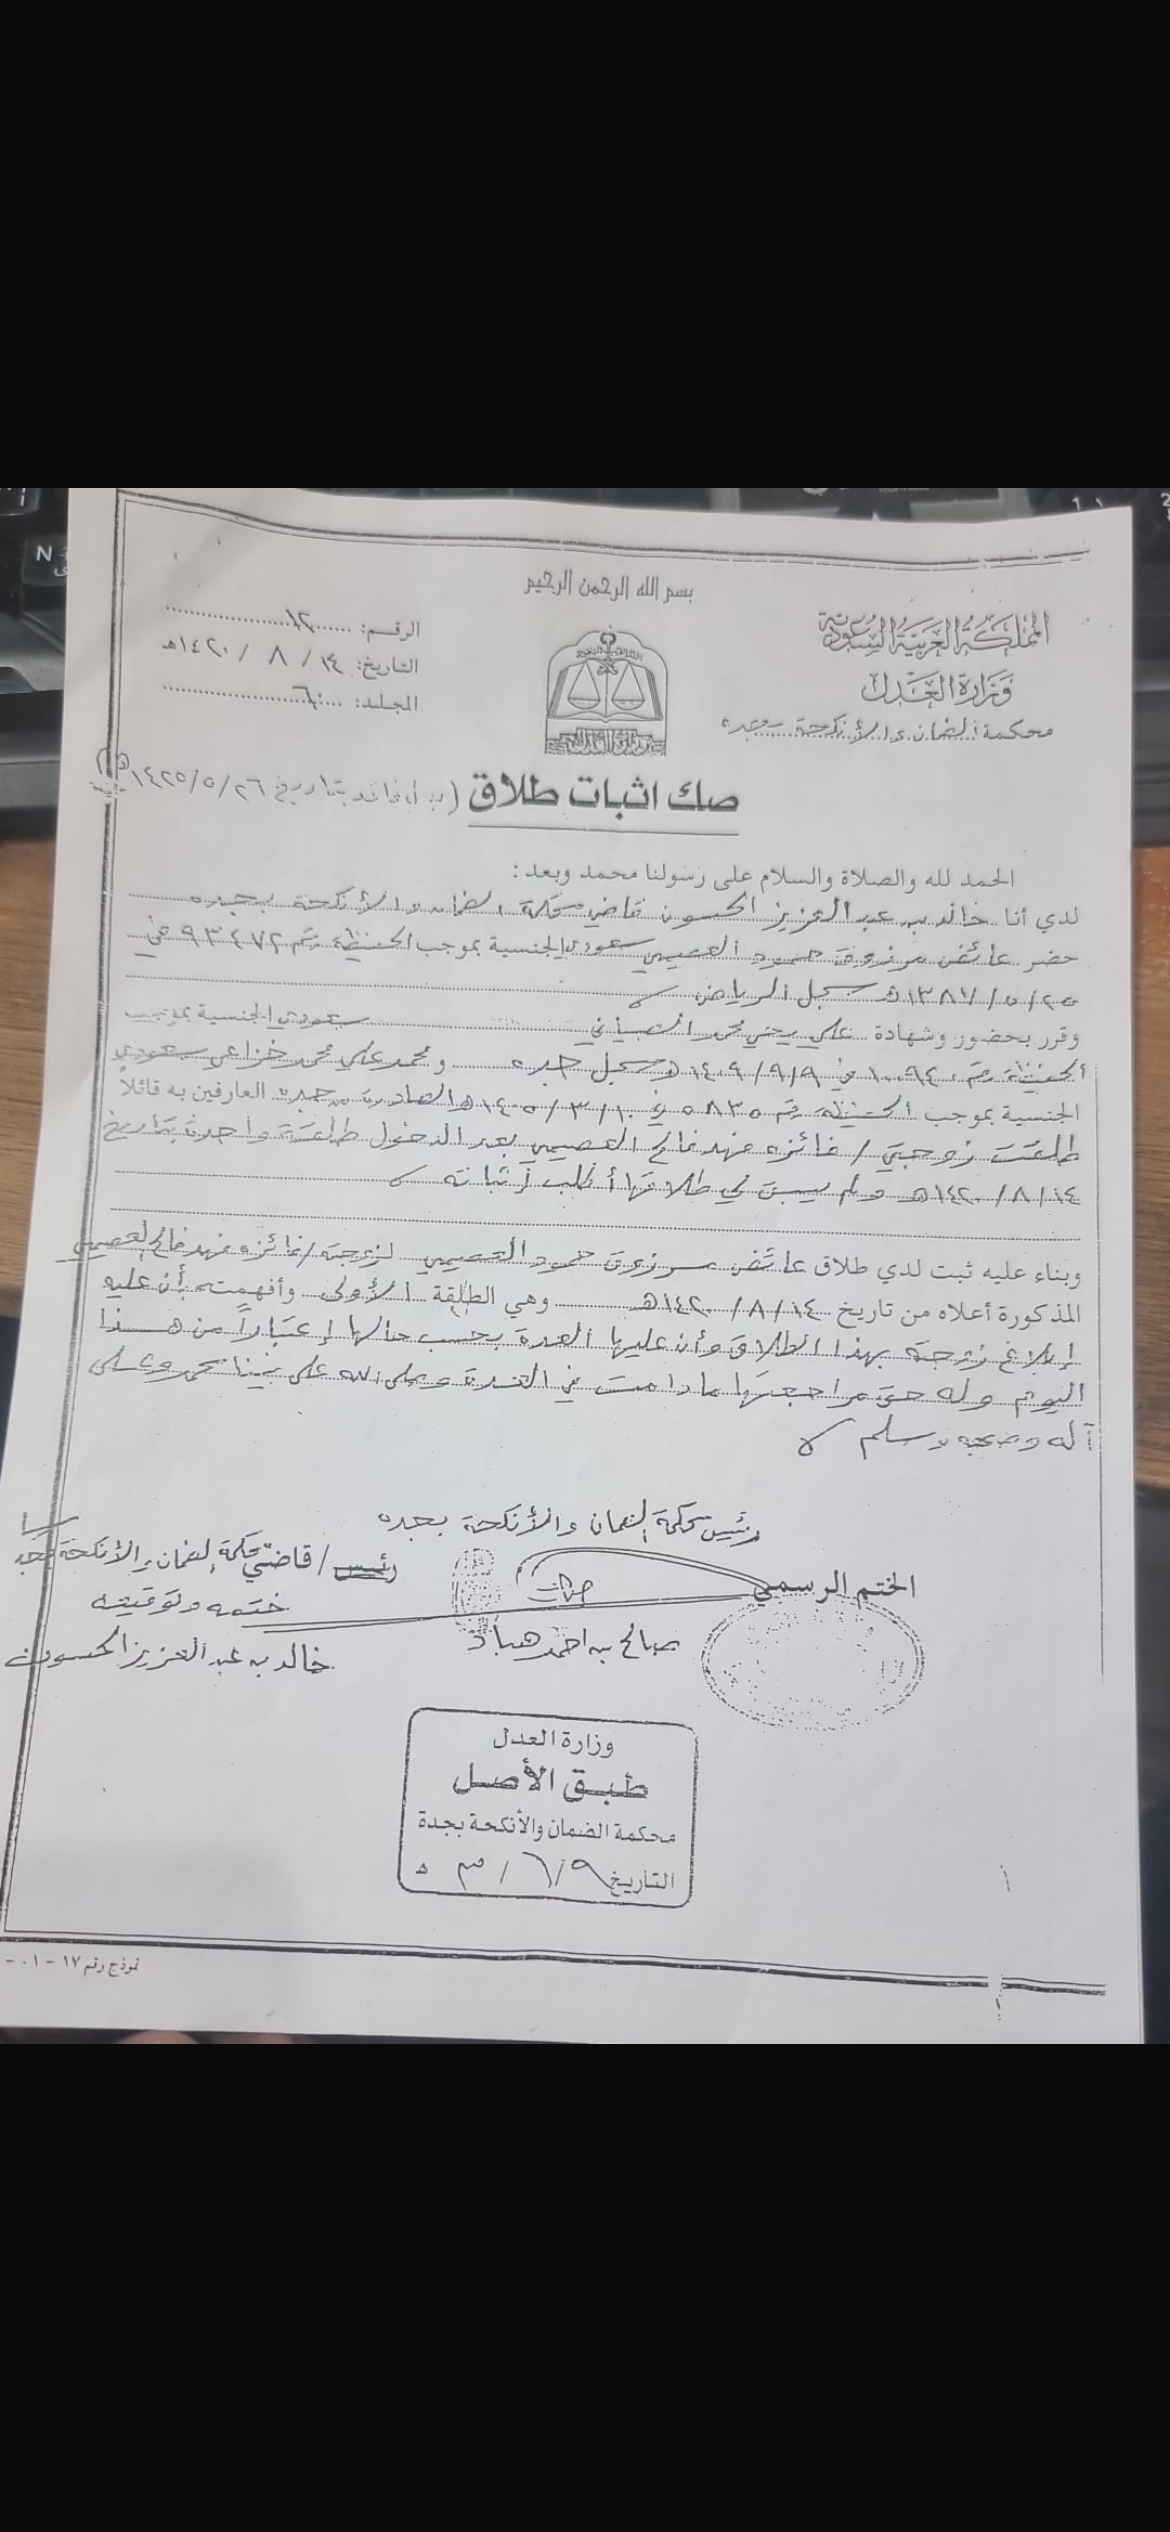 بسم الله الرحمن الرحيم
المملكة العربية السعودية
وزارة العدل
محكمة الضمان والأنكحة بجده
الرقم:
التاريخ: ١٤ / ٨ / ١٤٢٠هـ
المجلد:
صك اثبات طلاق (بدل فاقد بتاريخ ١٤٢٥/٥/٢٦هـ)
الحمد لله والصلاة والسلام على رسولنا محمد وبعد:
لدي أنا خالد بن عبد العزيز الحسون قاضي محكمة الضمان والأنكحة بجده
حضر عائض مرزوق حمود العصيمي سعودي الجنسية بموجب الحفيظة رقم ٩٣٠٤٧٢ في
١٣٨٧/٥/٢٥هـ سجل الرياض
وقرر بحضور وشهادة علي يحيى محمد سعودي الجنسية بموجب
الحفيظة رقم ١٠٠٩٤٠ في ١٤٠٩/٩/٩هـ سجل جده ومحمد علي محمد خزاعي سعودي
الجنسية بموجب الحفيظه رقم ٥٨٣٥ في ١٤٠٥/٣/١٠هـ الصادرة من جده العارفين به قائلاً
طلقت زوجتي / فائزه فهد فالح العصيمي بعد الدخول طلقة واحدة بتاريخ
١٤٢٠/٨/١٤هـ ولم يسبق لي طلاقها أطلب إثباته
وبناء عليه ثبت لدي طلاق عائض مرزوق حمود العصيمي لزوجته / فائزه فهد فالح العصيمي
المذكورة أعلاه من تاريخ ١٤٢٠/٨/١٤هـ وهي الطلقة الأولى وأفهمته أن عليه
إبلاغ زوجته بهذا الطلاق وأن عليها العدة بحسب حالها إعتباراً من هذا
اليوم وله حق مراجعتها ما دامت في العدة وصلى الله على نبينا محمد وعلى
آله وصحبه وسلم
رئيس محكمة الضمان والأنكحة بجده
رئيس / قاضي محكمة الضمان والأنكحة بجده
الختم الرسمي
ختمه وتوقيعه
صالح بن احمد
خالد بن عبد العزيز الحسون
وزارة العدل
طبق الأصل
محكمة الضمان والأنكحة بجدة
التاريخ ٩/٦/ هـ
نموذج رقم ١٧ - ٠١ -